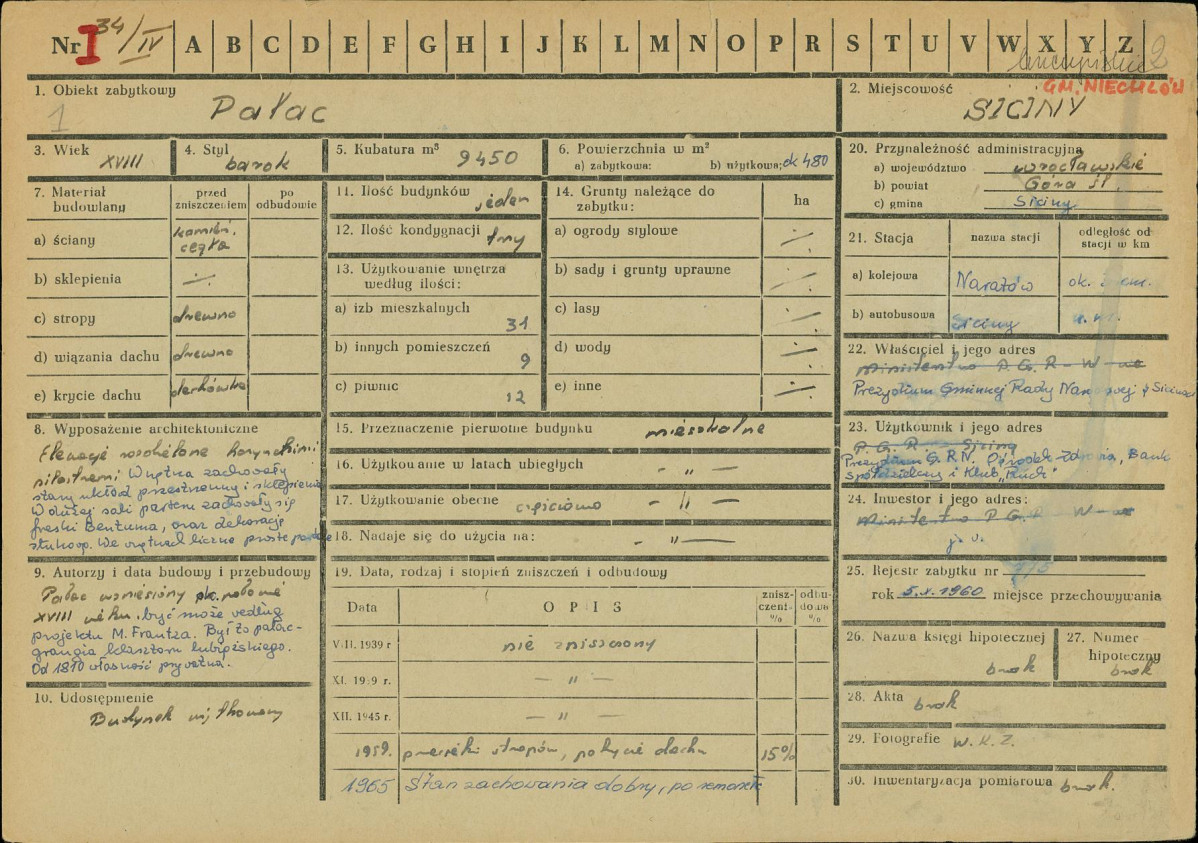 Nr I 34/IV A B C D E F G H I J K L M N O P R S T U V W X Y Z
2
1. Obiekt zabytkowy
1
Pałac
2. Miejscowość
GM. NIECHLÓW
SICINY
3. Wiek
XVIII
4. Styl
barok
5. Kubatura m³ 9450
6. Powierzchnia w m²
a) zabytkowa: b) użytkowa; ok 480
20. Przynależność administracyjna
a) województwo wrocławskie
b) powiat Góra śl.
c) gmina Siciny
7. Materiał budowlany
przed zniszczeniem
po odbudowie
a) ściany kamień, cegła
b) sklepienia ./.
c) stropy drewno
d) wiązania dachu drewno
e) krycie dachu dachówka
11. Ilość budynków jeden
12. Ilość kondygnacji trzy
13. Użytkowanie wnętrza
według ilości:
a) izb mieszkalnych
31
b) innych pomieszczeń
9
c) piwnic
12
14. Grunty należące do
zabytku:
ha
a) ogrody stylowe ./.
b) sady i grunty uprawne ./.
c) lasy ./.
d) wody ./.
e) inne ./.
21. Stacja
nazwa stacji
odległość od
stacji w km
a) kolejowa ok.
b) autobusowa Siciny
22. Właściciel i jego adres
Ministerstwo P.G.R. - W-wa
Prezydium Gminnej Rady Narodowej w Sicinach
8. Wyposażenie architektoniczne
Elewacje rozdzielone korynckimi
pilastrami Wnętrza zachowały
stary układ przestrzenny i sklepienia
W dużej sali parteru zachowały się
freski Bentuma, oraz dekoracje
stiukop. We wnętrzach liczne proste
15. Przeznaczenie pierwotne budynku mieszkalne
16. Użytkowanie w latach ubiegłych - " -
17. Użytkowanie obecne częściowo - " -
18. Nadaje się do użycia na: - " -
23. Użytkownik i jego adres
P.G.R. - Siciny
Prezydium G.R.N., Ośrodek Zdrowia, Bank
Spółdzielczy i Klub „Ruch"
24. Inwestor i jego adres:
Ministerstwo P.G.R. W-wa
j.w.
9. Autorzy i data budowy i przebudowy
Pałac wzniesiony ok. połowie
XVIII wieku, być może według
projektu M. Frantza. Był to pałac-
grangia klasztoru lubiąskiego.
Od 1810 własność prywatna.
19. Data, rodzaj i stopień zniszczeń i odbudowy
Data
OPIS
zniszczeni- %
odbudowa %
VIII. 1939 r nie zniszczony
XI. 1939 r. - " -
XII. 1945 r. - " -
1959. przecieki stropów, pokrycie dachu 15%
1965 Stan zachowania dobry, po remoncie
25. Rejestr zabytku nr
rok 5.X.1960 miejsce przechowywania
26. Nazwa księgi hipotecznej
brak
27. Numer
hipoteczny
brak
10. Udostępnienie
Budynek użytkowany
28. Akta brak
29. Fotografie W.K.Z.
30. Inwentaryzacja pomiarowa brak.